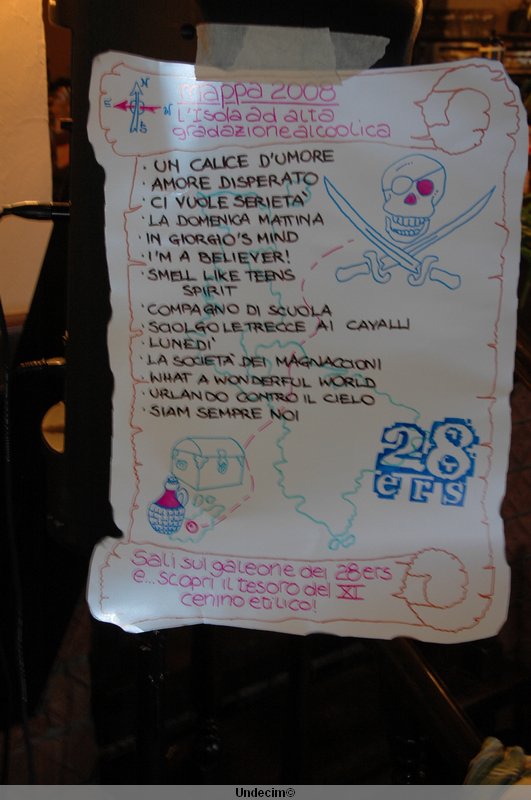 N
S
N
S
Mappa 2008
L'Isola ad alta
gradazione alcoolica
· UN CALICE D'UMORE
· AMORE DISPERATO
· CI VUOLE SERIETA'
· LA DOMENICA MATTINA
· IN GIORGIO'S MIND
· I'M A BELIEVER!
· SMELL LIKE TEENS
SPIRIT
· COMPAGNO DI SCUOLA
· SCIOLGO LE TRECCE AI CAVALLI
· LUNEDI'
· LA SOCIETA' DEI MAGNACCIONI
· WHAT A WONDERFUL WORLD
· URLANDO CONTRO IL CIELO
· SIAM SEMPRE NOI
28
ers
Sali sul galeone dei 28ers
e...scopri il tesoro del XI
cenino etilico!
Undecim©